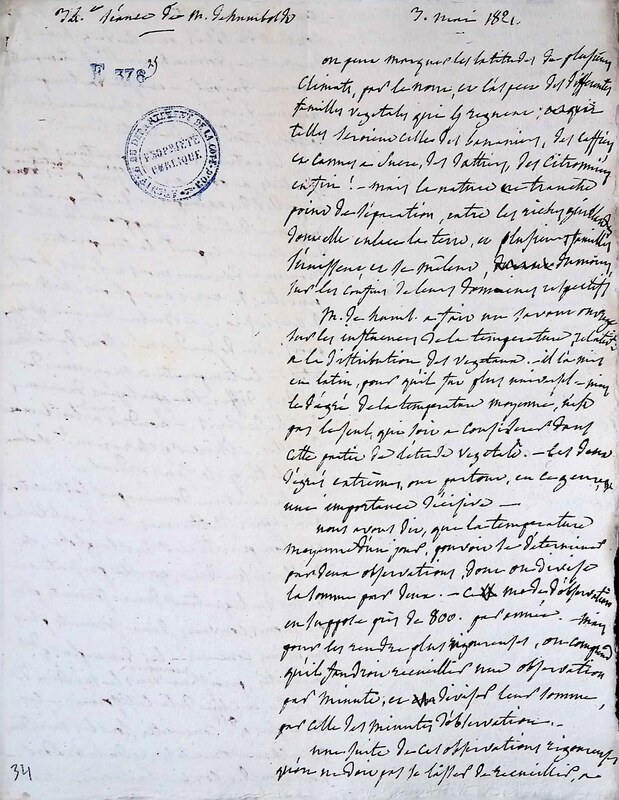 32.e séance de M. de humboldt
3. mai 1821.
E 378 25
ARCHIVES DU DEPARTEMENT DE LA COTE-D'OR
PROPRIÉTÉ PUBLIQUE
on peut marquer les latitudes de plusieurs
climats, par le nom et l'espece des differentes
familles vegetales qui y regnent;
telles seroient celles des bananiers, des caffiers
et cannes a sucre, des dattiers, des citronniers
enfin! - mais la nature ne tranche
point de séparation, entre les riches
dont elle enlace la terre, et plusieurs familles
s'unissent et se mêlent, du moins,
sur les confins de leurs domaines respectifs
M. de humb. a fait un savant ouvrage
sur les influences de la temperature, relative
a la distribution des vegetaux. il l'a mis
en latin, pour qu'il fut plus universel - mais
le dégré de la temperature moyenne, n'est
pas le seul, que soit a considerer dans
cette partie de l'etude vegetale. - Les deux
dégrés extrêmes, ont partout, en ce genre,
une importance décisive -
nous avons dit, que la temperature
moyenne d'un jour, pouvoit se determiner
par deux observations, dont on divise
la somme par deux. - ce mode d'observation
en suppose près de 800. par année. - mais
pour les rendre plus rigoureuses, on comprend
qu'il faudroit recueillir une observation
par minute, et diviser leur somme,
par celle des minutes d'observation. -
une suite de ces observations rigoureuses
qu'on ne doit pas se lasser de recueillir, a
34